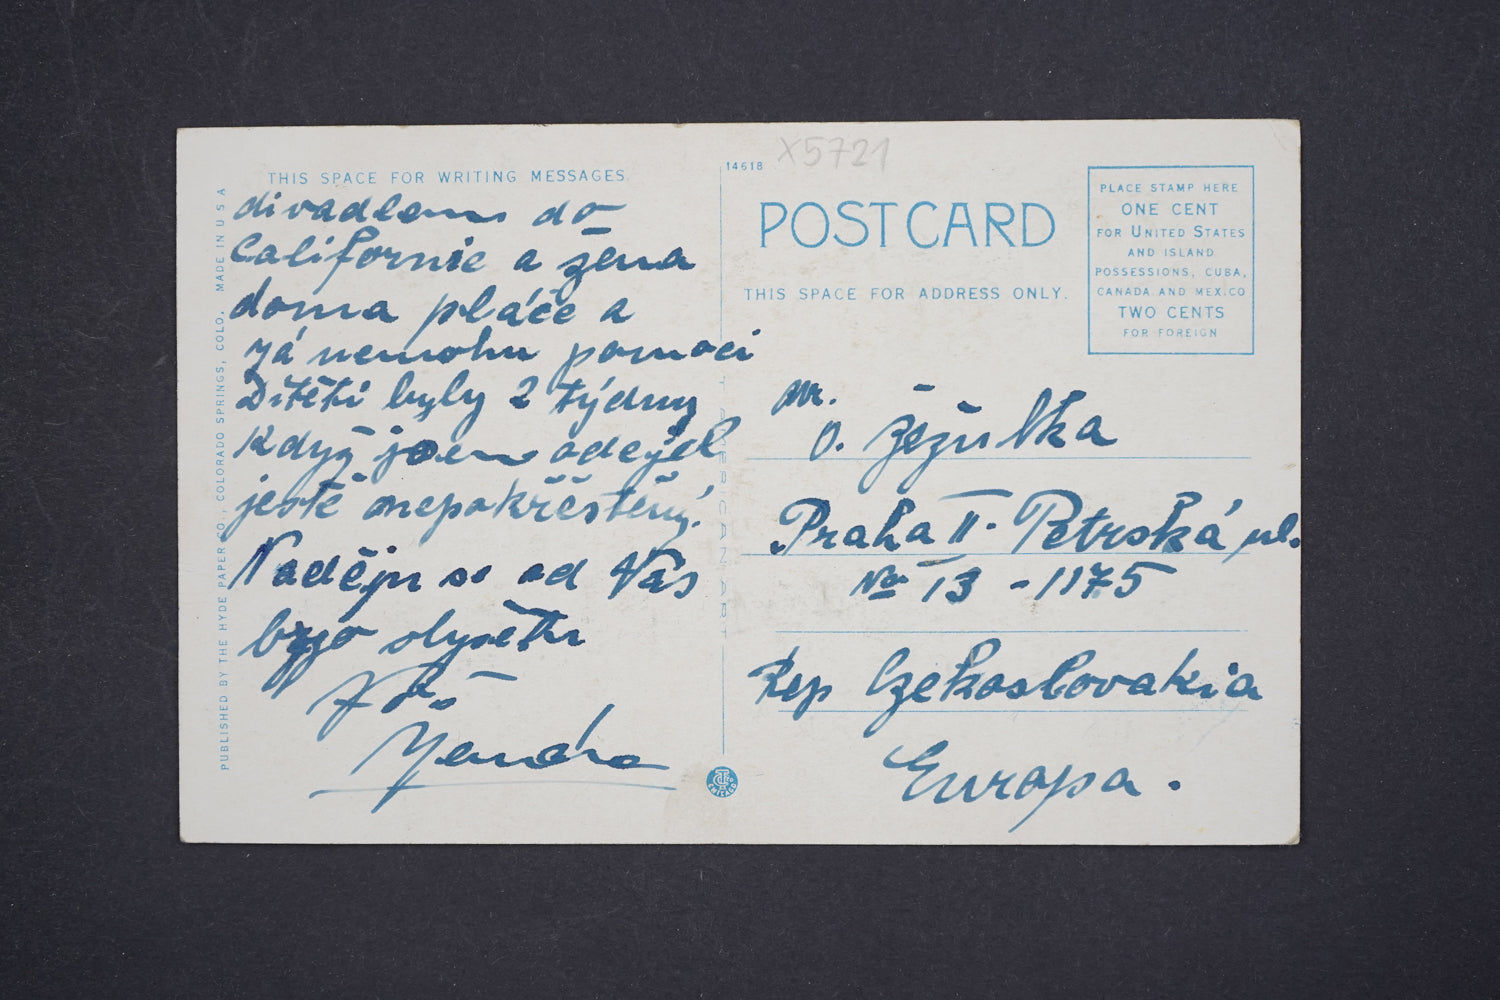 THIS SPACE FOR WRITING MESSAGES.
divadlem do
Californie a žena
doma pláče a
já nemohu pomoci
Dítěti byly 2 týdny
když jsem odejel
jestě nepokřěstěný.
Naděju se od Vás
brzo slyšeti
Váš
PUBLISHED BY THE HYDE PAPER CO., COLORADO SPRINGS, COLO. MADE IN U S A
14618
X5721
POST CARD
THIS SPACE FOR ADDRESS ONLY.
PLACE STAMP HERE
ONE CENT
FOR UNITED STATES
AND ISLAND
POSSESSIONS, CUBA,
CANADA AND MEXICO
TWO CENTS
FOR FOREIGN
Mr.
O. Žežulka
Praha II. Petrská ul.
No 13 - 1175
Rep Czekoslovakia
Europa.
CHICAGO